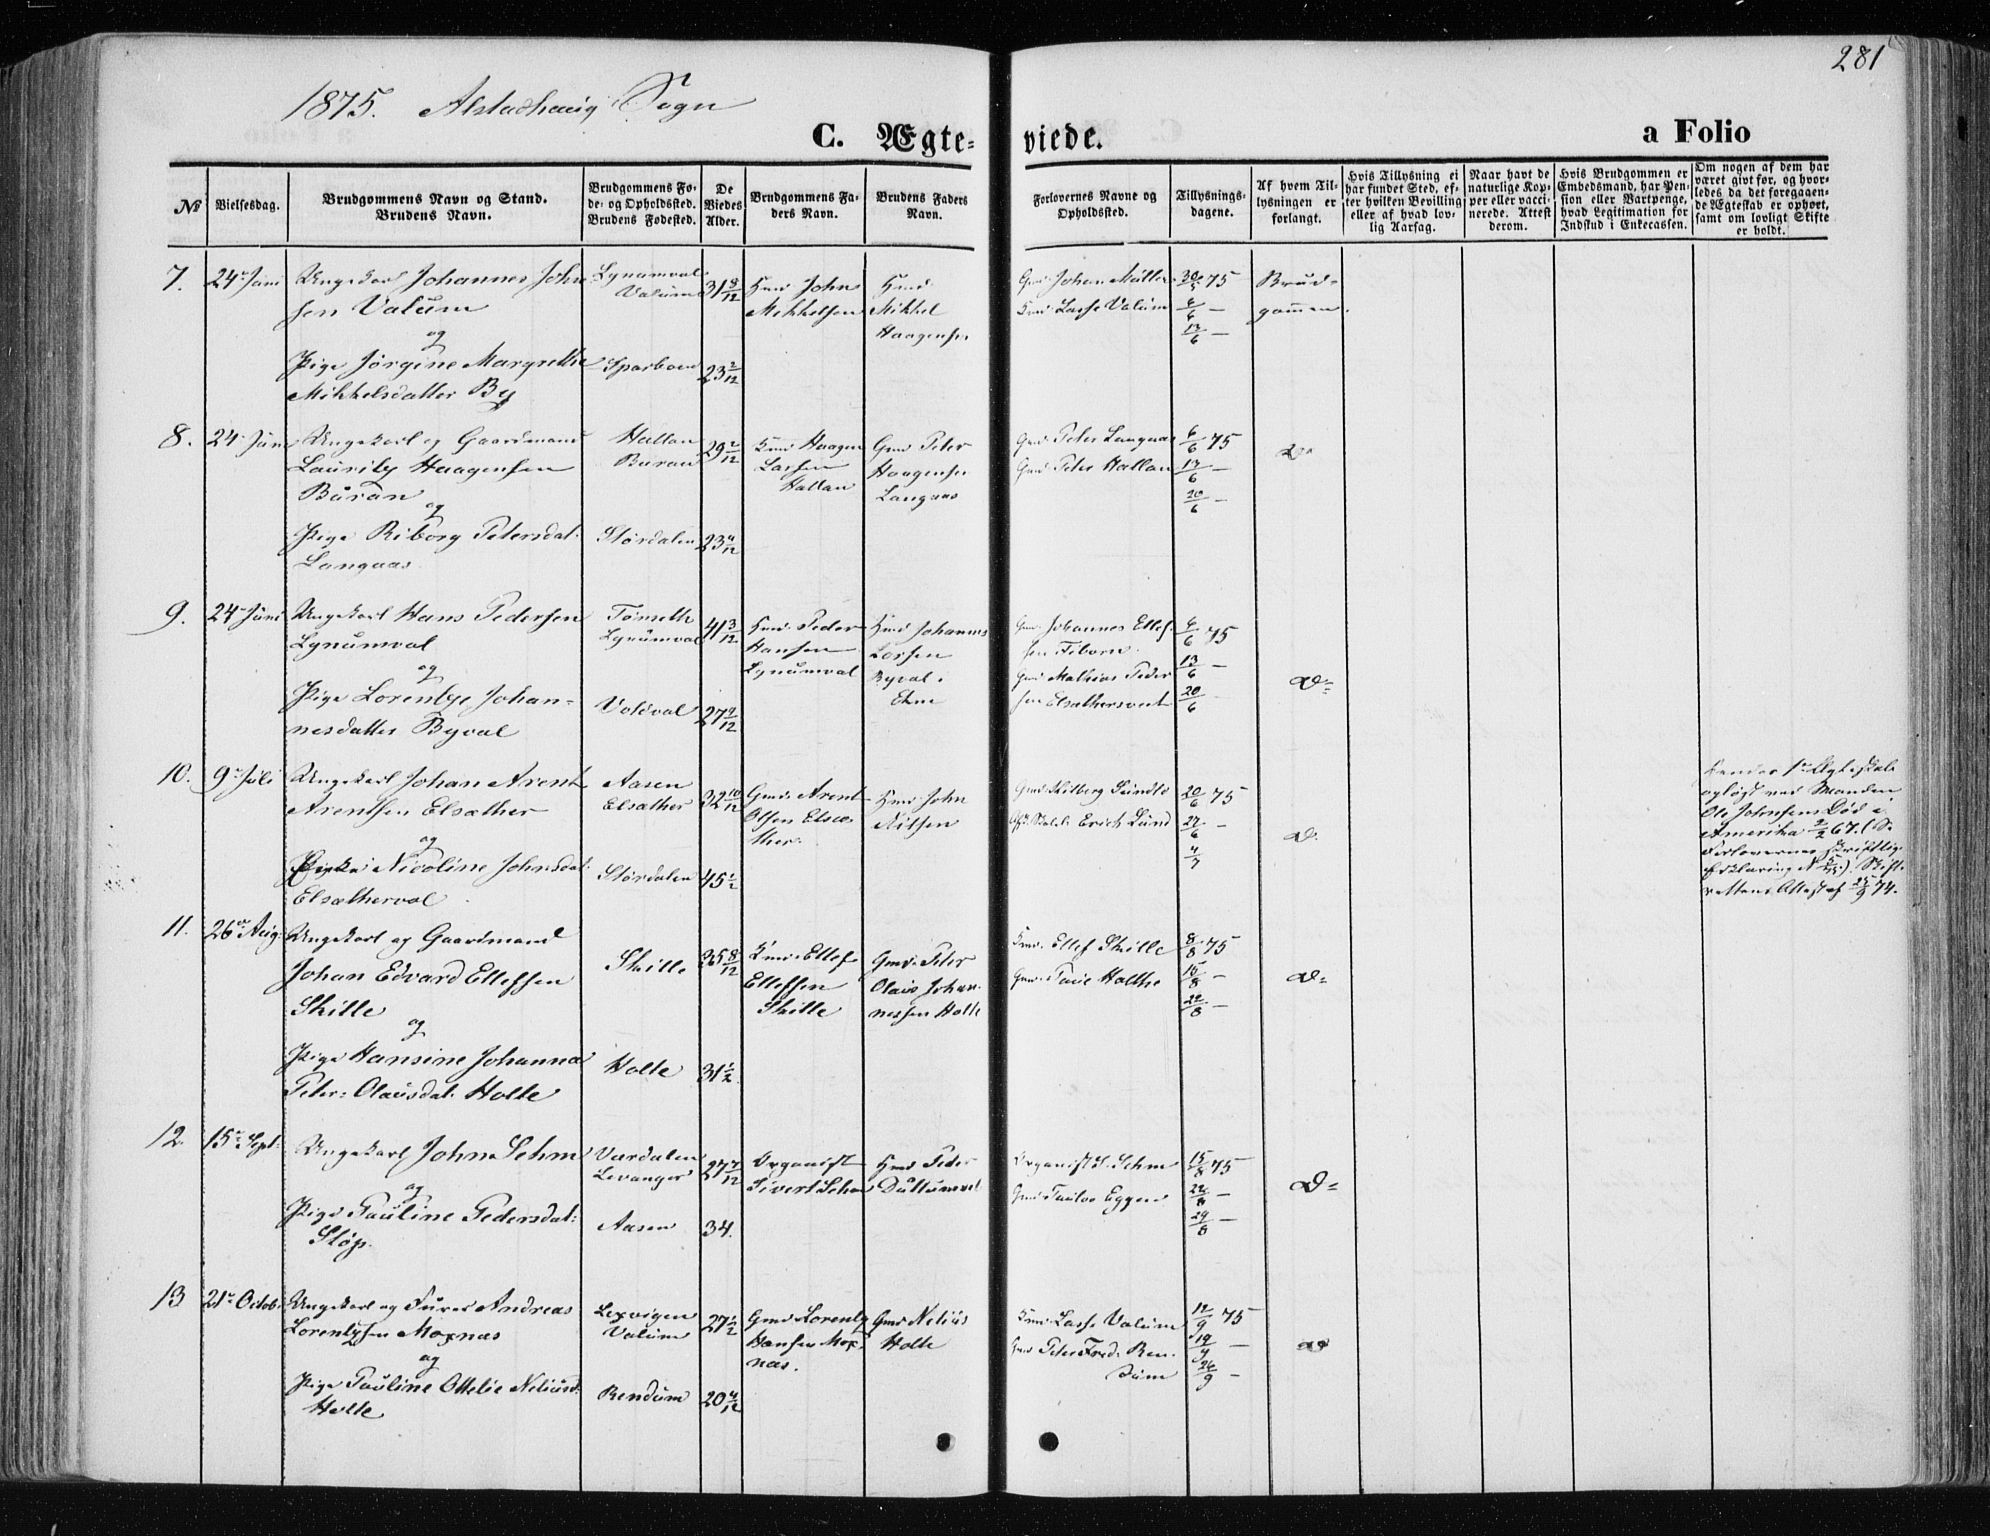 281
1875. Alstadhaug Sogn
C. Ægte-viede.
a Folio
№
Vielsesdag.
Brudgommens Navn og Stand.
Brudens Navn.
Brudgommens Fø-
de- og Opholdssted.
Brudens Fødested.
De
Viedes
Alder.
Brudgommens Fa-
ders Navn.
Brudens Faders
Navn.
Forlovernes Navne og
Opholdssted.
Tillysnings-
dagene.
Af hvem Til-
lysningen er
forlangt.
Hvis Tillysning ei
har fundet Sted, ef-
ter hvilken Bevilling
eller af hvad lov-
lig Aarsag.
Naar havt de
naturlige Kop-
per eller vacci-
nerede. Attest
derom.
Hvis Brudgommen er
Embedsmand, har Pen-
sion eller Vartpenge,
hvad Legitimation for
Indskud i Enkecassen.
Om nogen af dem har
været givt før, og hvor-
ledes da det foregaaen-
de Ægteskab er ophørt,
samt om lovligt Skifte
er holdt.
7.
24de Juni
Ungekarl Johannes John
sen Valum
og
Pige Jørgine Margrethe
Mikkelsdatter By
Lynumval
Valum
Sparboen
31 8/12
23 2/12
Hmd John
Mikkelsen
Hmd
Mikkel
Haagensen
Gmd Johan Müller
Kmd Lasse Valum
30/5 75
6/6 —
13/6 —
Brud-
gommen.
8.
24 Juni
Ungekarl og Gaardmand
Lauritz Haagensen
Buran
og
Pige Riborg Petersdat:
Langaas
Hallan
Buran
Størdalen
29 2/12
23 4/12
Kmd Haagen
Lassen
Hallan
Gmd Peter
Haagensen
Langaas
Gmd Peter Langaas
Gmd Peter Hallan
6/6 75
13/6 —
20/6 —
Do
9.
24 Juni
Ungekarl Hans Pedersen
Lynumval
og
Pige Lorentze Johan-
nesdatter Byval
Tømeth
Lynumval
Voldval
41 3/12
27 9/12
Hmd Peder
Hansen
Lynumval
Hmd Johannes
Larsen
Byval.
Ekne
Gmd Johannes Ellef-
sen Fiborn.
Gmd Mathias Peder
sen Elsæthersvedt
6/6 75
13/6 —
20/6 —
Do=
10.
9de Juli
Ungekarl Johan Arent
Arentsen Elsæther
og
Nicoline Johnsdat:
Elsætherval
Aasen
Elsæther
Størdalen
32 10/12
45 1/2
Gmd: Arent
Olsen Elsæ
ther.
Hmd John
Nilsen
Erich Lund
20/6 75
27/6 —
4/7
Do.
Hendes 1ste Ægteskab
opløst ved Manden
Ole Johnsens Død i
Amerika 2/2 67. (S.
Forlovernes skriftlig
Erklæring N 5/75). Skift
rettens Attest af 25/9 74.
11.
26de Aug:
Ungekarl og Gaardmand
Johan Edvard Ellefsen
Skille
og
Pige Hansine Johanna
Peter-Olausdat. Holte
Skille
Holte
35 8/12
31 1/2
Kmd. Ellef
Ellefsen
Skille
Gmd. Peter
Olaus Johan-
nessen Holte
Kmd. Ellef Skille
8/8 75
15/8 —
22/8 —
Do=
12.
15de Sept:
Ungekarl John Sehm
og
Pige Pauline Pedersdat:
Støp.
Værdalen
Levanger
Aasen
27 7/12
34.
Organist
Sivert Sehm
Hmd Peder
Organist S. Sehm
Gmd Paulus Eggen
15/8 75
22/8 —
29/8 —
Do=
13
21de Octob:
Ungekarl og Furer Andreas
Lorentzsen Moxnæs
og
Pige Pauline Ottelie Neliusd.
Holte
Lexvigen
Valum
Rendum
27 1/2
20 4/12
Gmd Lorentz
Hansen Mox
næs.
Gmd Nelius
Holte
Kmd Lasse Valum
Gmd Peter Fred. Ren-
dum
12/9 75
19/9 —
26/9 —
Do